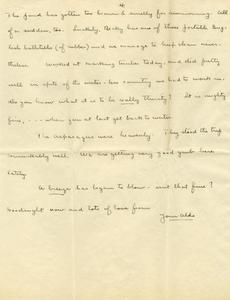 4.
The pond has gotten too brown & smelly for swimming. All
of a sudden, too. Luckily, Betty has one of those portable Eng-
lish bathtubs (of rubber) and we manage to keep clean never-
theless. Worked at marking timber today, and did pretty
well in spite of the water-less country we had to work in.
Do you know what it is to be really thirsty? It is mighty
fine, .... when you at last get back to water.
The asparagus were heavenly. They stood the trip
remarkably well. We are getting very good grub here
lately.
A breeze has begun to blow - isn't that fine?
Goodnight now and lots of love from
Your Aldo